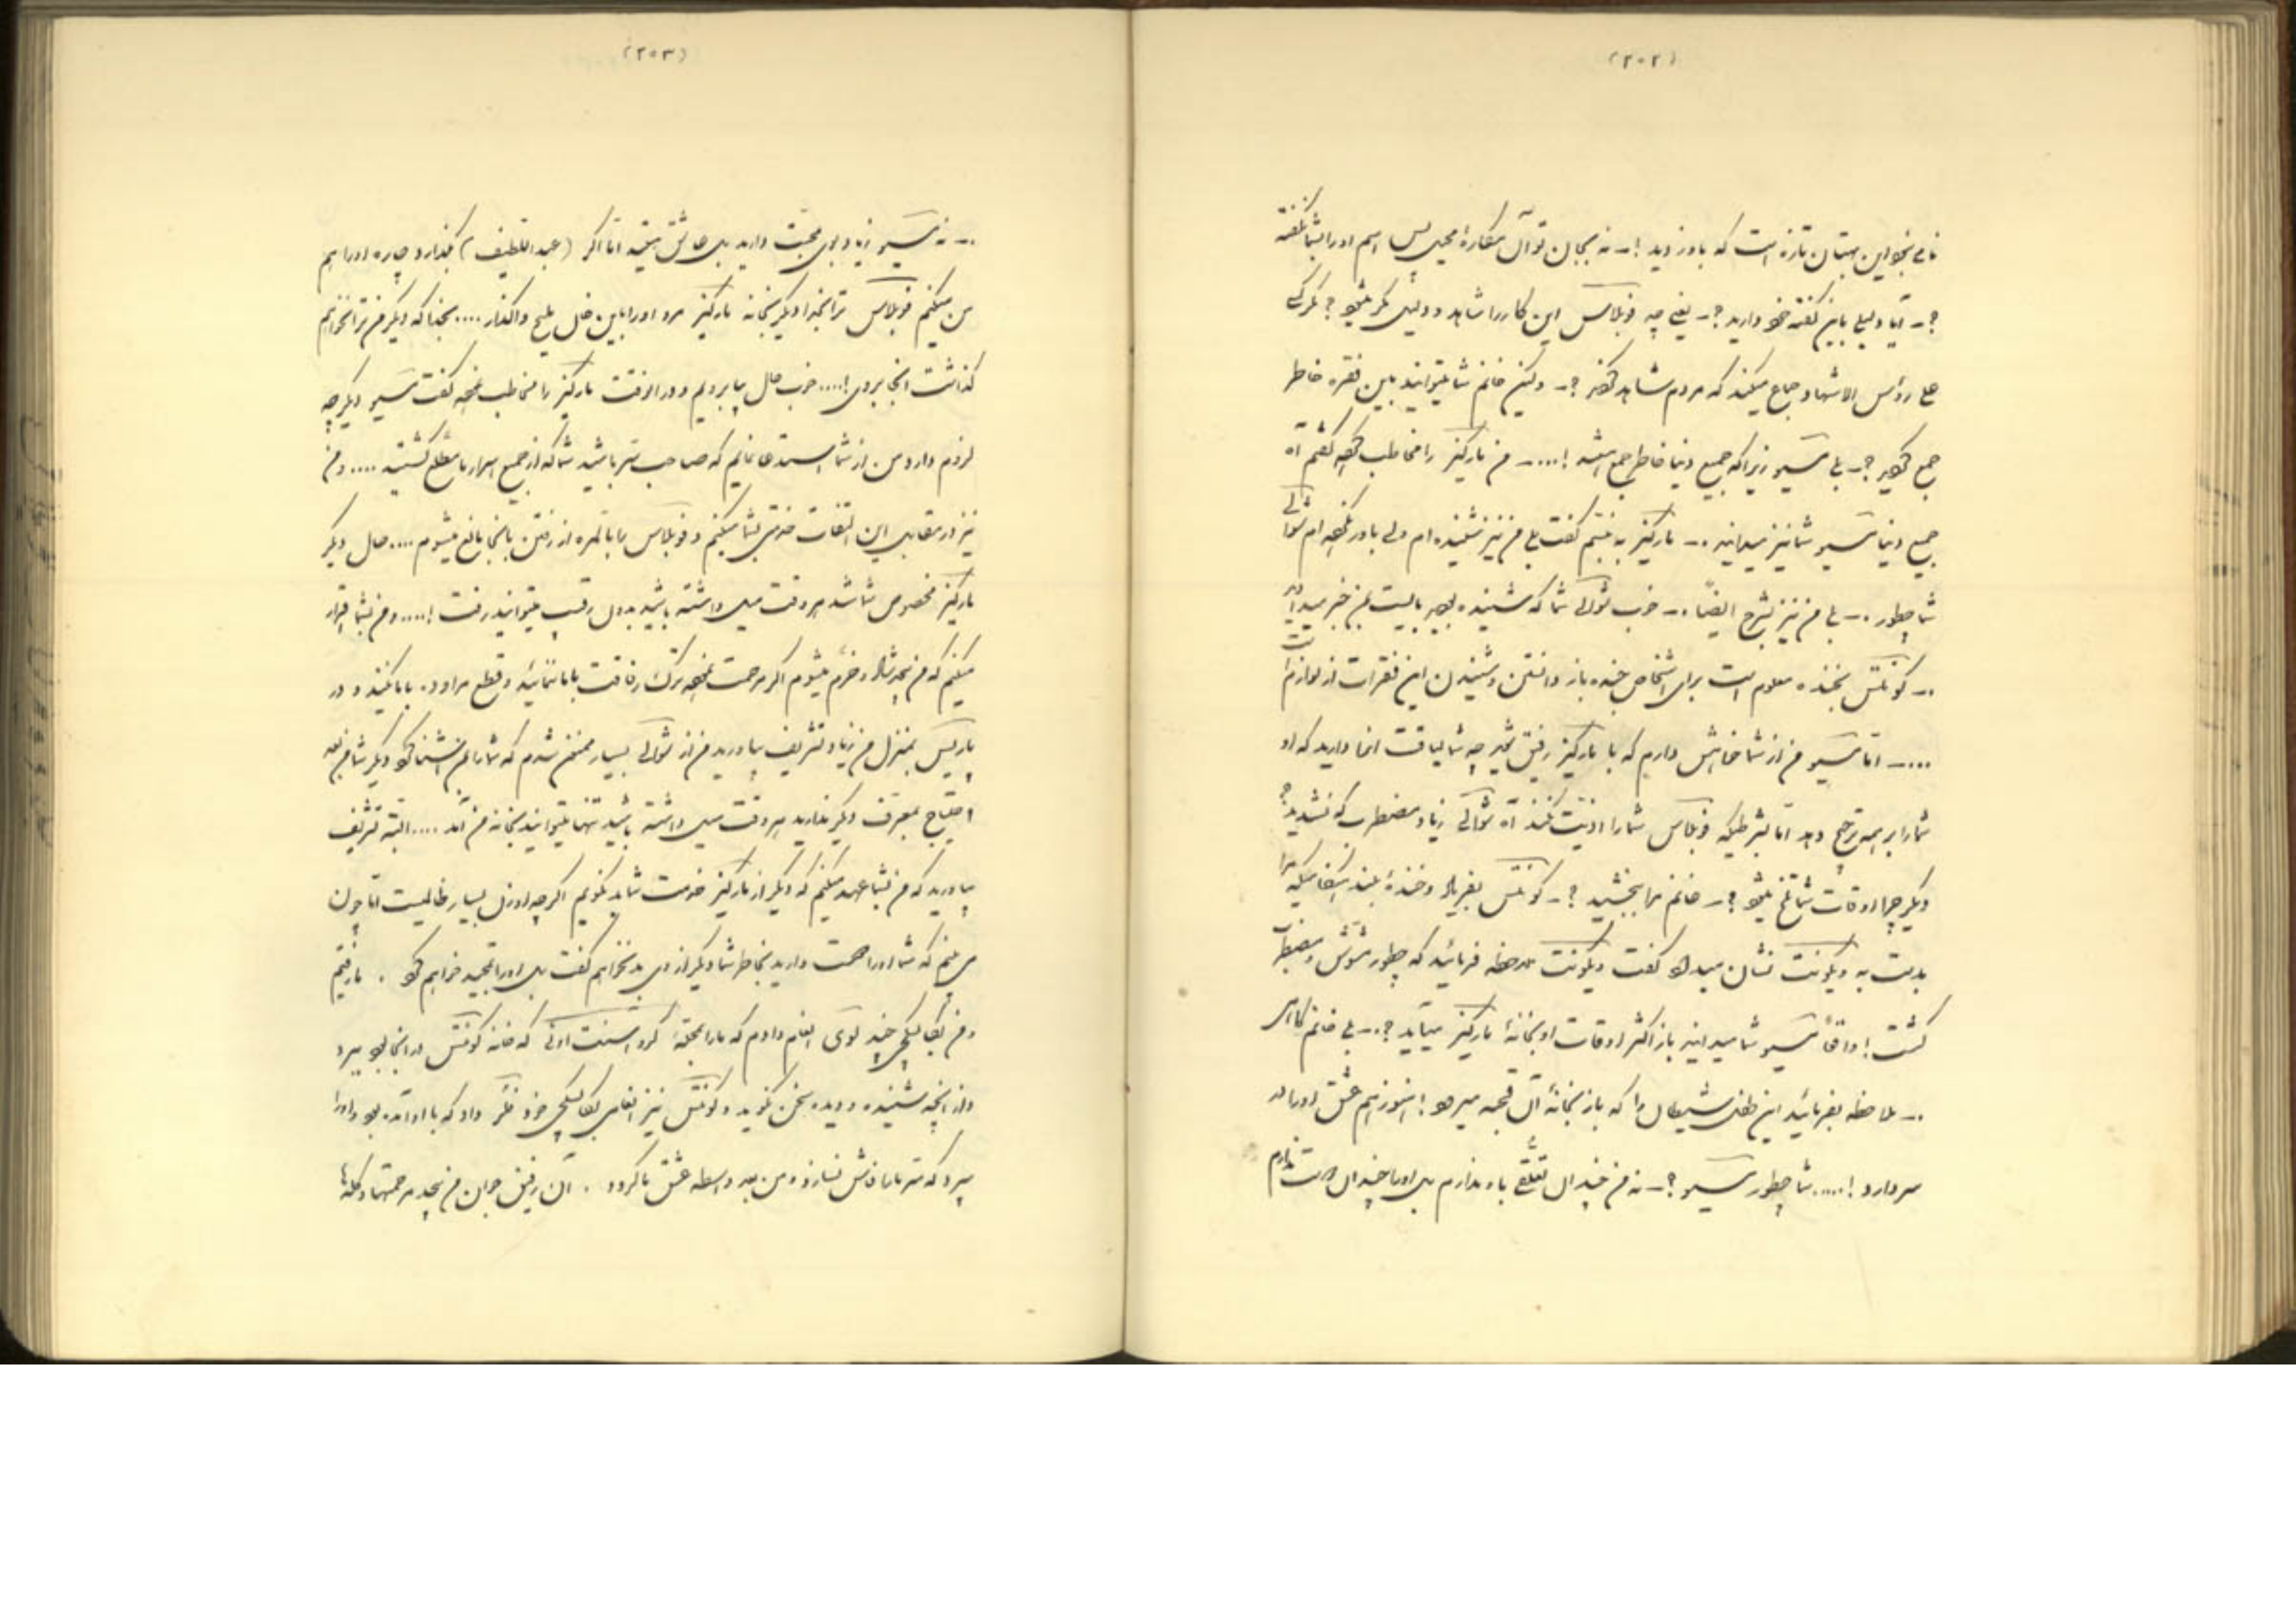 (۲۰۲)
این بهتان تازه است که باور ندید !ـ نه بجان تو آن مکاره محیل پس اسم او را بشما نگفته
؟ـ آیا دلیلی باین گفته خود دارید ؟ـ یعنی چه فوبلاس این کار را شاهد و دلیل دیگر
علی رؤس الاشهاد جماع میکنند که مردم شاهد شوند ؟ـ ولیکن خانم شما میتوانید باین فقره خاطر
جمع شوید ؟ـ بلی مسیو زیرا که جمیع دنیا خاطر جمع باشند !....ـ من مارکیز را مخاطب نموده گفتم آه
جمیع دنیا مسیو شما نیز میدانید .ـ مارکیز به تبسم گفت بلی من نیز شنیده ام ولی باور نکرده ام شوالی
شما چطور .ـ بلی من نیز بشرح ایضاً .ـ خوب شوالی شما که شنیده بودید بایست بمن خبر میدادید
.ـ کونتس بخنده معلوم است برای اشخاص خنده باز دانستن و شنیدن این فقرات از لوازم است
....ـ اما مسیو من از شما خواهش دارم که با مارکیز رفیق شوید چه شما لیاقت آنرا دارید که او
شما را بر همه ترجیح دهد اما بشرطیکه فوبلاس شما را اذیت نکند آه شوالی زیاد مضطرب که نشدید ؟
دیگر چرا اوقات شما تلخ میشود ؟ـ خانم مرا ببخشید ؟ـ کونتس بفریاد و خنده بلند
بدست به ویکونت نشان میداد گفت ویکونت ملاحظه فرمائید که چطور مشوش و مضطرب
گشت ! واقعاً مسیو شما میدانید باز اکثر اوقات او بخانه مارکیز میآید ؟ـ بلی خانم
.ـ ملاحظه بفرمائید این طفل شیطان را که باز بخانه آن قحبه میرود ! هنوز هم عشق او را در
سر دارد !.... شما چطور مسیو ؟ـ نه من چندان تعلقی باو ندارم بلی او را چندان دوست ندارم
(۲۰۳)
.ـ نه مسیو زیاد بوی محبت دارید بلی عاشق نیستید اما اگر (عبداللطیف) بگذارد چاره او را هم
من میکنم فوبلاس ترا بخدا دیگر بخانه مارکیز مرو او را باین واگذار .... بخدا که دیگر من ترا نخواهم
گذاشت آنجا بروی !.... خوب حال بیا برویم و در آنوقت مارکیز را مخاطب نموده گفت مسیو دیگر چه
لزوم دارد من از شما استدعا نمایم که صاحب سر باشید شما که از جمیع اسرار ما مطلع گشتید .... و من
نیز در مقابل این التفات خدمتی بشما میکنم و فوبلاس را بالمره از رفتن بآنجا مانع میشوم .... حال دیگر
مارکیز مخصوص شما شد هر وقت میل داشته باشید بدون رقیب میتوانید رفت !.... و من بشما اقرار
میکنم که من بیحد شاد و خرم میشوم اگر مرحمت نموده ترک رفاقت با ما ننمائید و قطع مراوده با ما نکنید و در
پاریس بمنزل من زیاد تشریف بیاورید من از شوالی بسیار ممنون شدم که شما را بمن شناسا کرد دیگر شما من بعد
احتیاج بمعرف دیگر ندارید هر وقت میل داشته باشید تنها میتوانید بخانه من آمد .... البته تشریف
بیاورید که من بشما عهد میکنم که دیگر از مارکیز خدمت شما بد نگویم اگر چه او زن بسیار ظالمیست اما چون
می بینم که شما او را دوست دارید بخاطر شما دیگر از وی بد نخواهم گفت بلی او را تمجید خواهم کرد . ما رفتیم
و من بکالسکه چی چند لوی انعام دادم که ما را بمحله گرد سنت اونی که خانه کونتس در آنجا بود ببرد
و از آنچه شنیده و دیده سخن نگوید و کونتس نیز انعامی بکالسکه چی خود داد که با او آمده بود و او را
سپرد که سر ما را فاش نسازد و من بعد واسطه عشق ما گردد . آن رفیق جوان من بیحد مرحمتها و گله ها